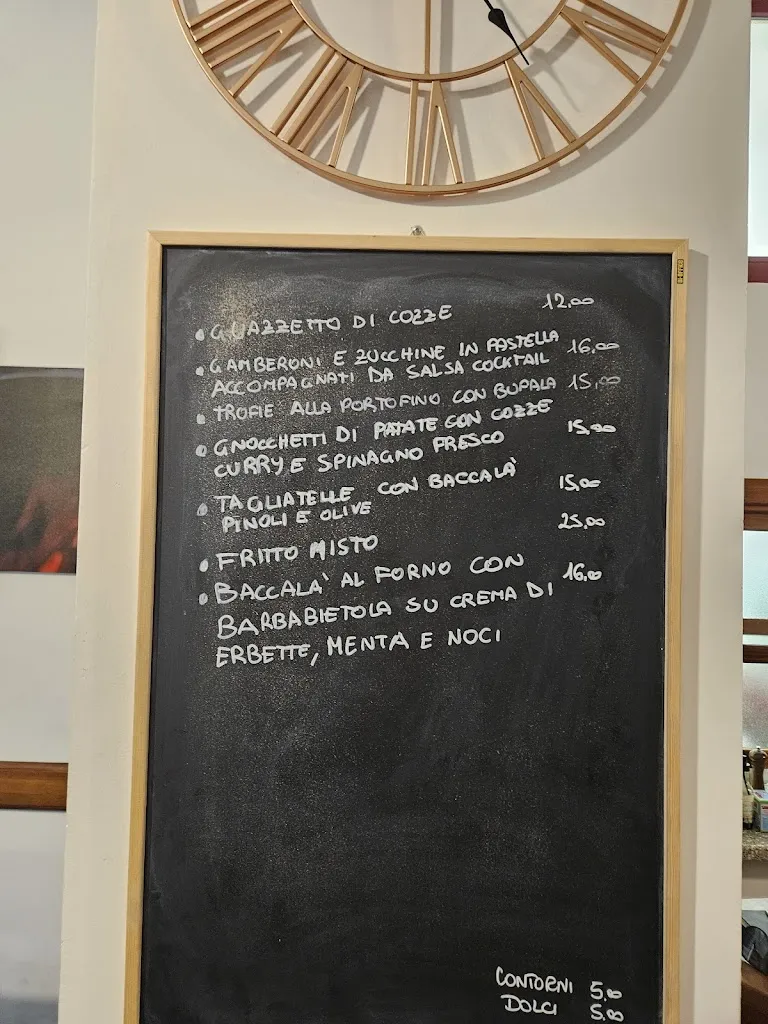 • GUAZZETTO DI COZZE 12,00
• GAMBERONI E ZUCCHINE IN PASTELLA 16,00
ACCOMPAGNATI DA SALSA COCKTAIL
• TROFIE ALLA PORTOFINO CON BUPALA 15,00
• GNOCCHETTI DI PATATE CON COZZE 15,00
CURRY E SPINAGNO FRESCO
• TAGLIATELLE CON BACCALÀ 15,00
PINOLI E OLIVE
• FRITTO MISTO 25,00
• BACCALA' AL FORNO CON 16,00
BARBABIETOLA SU CREMA DI
ERBETTE, MENTA E NOCI
CONTORNI 5,00
DOLCI 5,00